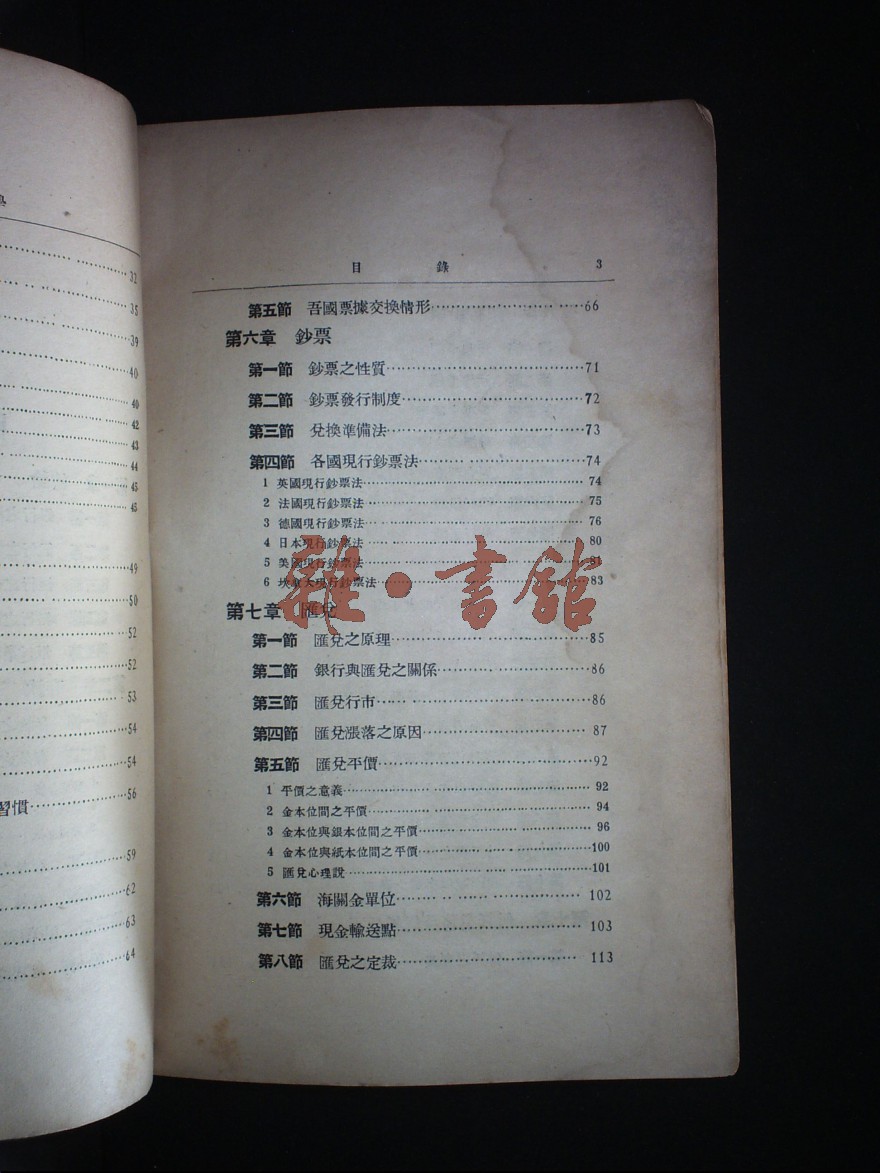 32
35
39
40
40
42
43
44
45
45
49
50
52
52
53
54
54
習慣 56
59
62
63
64
目錄 3
第五節 吾國票據交換情形 66
第六章 鈔票
第一節 鈔票之性質 71
第二節 鈔票發行制度 72
第三節 兌換準備法 73
第四節 各國現行鈔票法 74
1 英國現行鈔票法 74
2 法國現行鈔票法 75
3 德國現行鈔票法 76
4 日本現行鈔票法 80
5 美國現行鈔票法 81
6 坎拿大現行鈔票法 83
雜·書館
第七章 匯兌
第一節 匯兌之原理 85
第二節 銀行與匯兌之關係 86
第三節 匯兌行市 86
第四節 匯兌漲落之原因 87
第五節 匯兌平價 92
1 平價之意義 92
2 金本位間之平價 94
3 金本位與銀本位間之平價 96
4 金本位與紙本位間之平價 100
5 匯兌心理說 101
第六節 海關金單位 102
第七節 現金輸送點 103
第八節 匯兌之定裁 113